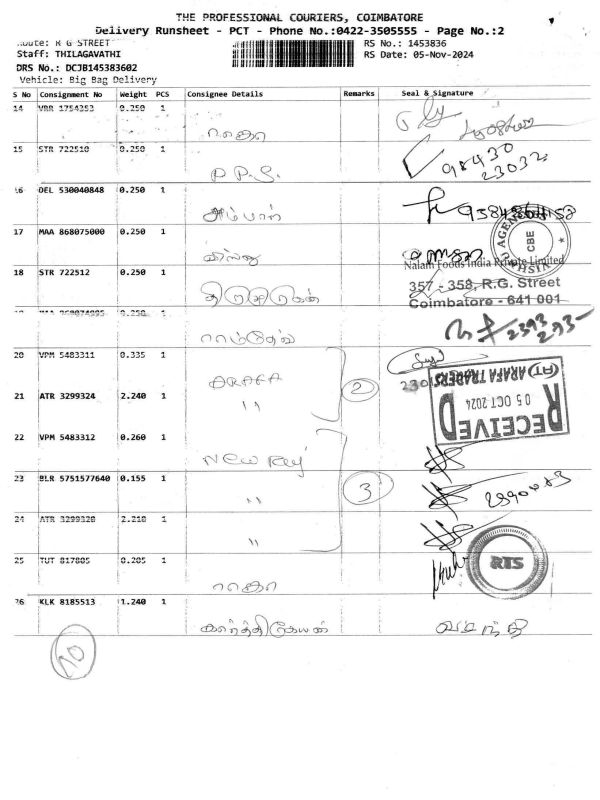 THE PROFESSIONAL COURIERS, COIMBATORE
Delivery Runsheet - PCT - Phone No.:0422-3505555 - Page No.:2
Route: R G STREET
RS No.: 1453836
Staff: THILAGAVATHI
RS Date: 05-Nov-2024
DRS No.: DCJB145383602
Vehicle: Big Bag Delivery
S No Consignment No Weight PCS Consignee Details Remarks Seal & Signature
14 VBR 1754353 0.250 1
15 STR 722510 0.250 1
P.P.S.
98430
23032
16 DEL 530040848 0.250 1
அம்பாள்
17 MAA 868075000 0.250 1
AGEN CBE
Nalam Foods India Private Limited
18 STR 722512 0.250 1
357 - 358, R.G. Street
Coimbatore - 641 001
0.250 1
ராம்தேவ்
20 VPM 5483311 0.335 1
ARAFA
2
21 ATR 3299324 2.240 1
"
(AT) ARAFA TRADERS
05 OCT 2024
RECEIVED
22 VPM 5483312 0.260 1
New Raj
23 BLR 5751577640 0.155 1
"
3
24 ATR 3299320 2.210 1
"
25 TUT 817805 0.205 1
RTS
26 KLK 8185513 1.240 1
கார்த்திகேயன்
வசந்தி
10